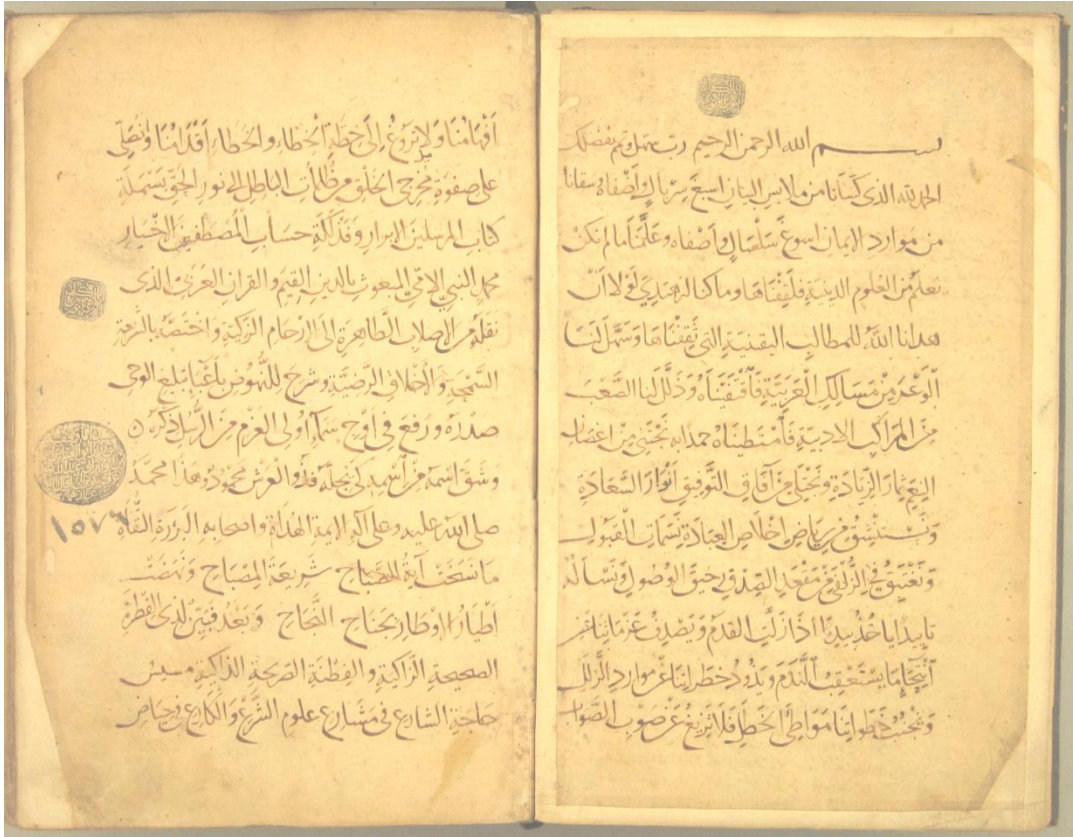 بسم الله الرحمن الرحيم رب سهل وتمم بفضلك
الحمد لله الذى كسانا من ملابس البيان اسبغ سربال واضفاه وسقانا
من موارد الايمان اسوغ سلسال واصفاه وعلمنا ما لم نكن
نعلم من العلوم الدينية فلقفناها وما كنا لنهتدي لولا ان
هدانا الله للمطالب اليقينية التى ثقفناها وسهل لنا
الوعر من مسالك العربية فاقتفيناه وذلل لنا الصعب
من المراكب الادبية فامتطيناه حمدا به نجتني من اغصان
النعم ثمار الزيادة ونجتلي من آفاق التوفيق انوار السعادة
ونستنشق من رياض اخلاص العبادة نسمات القبول
ونغتبق في الزلفى من مقعد الصدق رحيق الوصول ونسأله
تاييدا ياخذ بيدنا اذا زلت القدم ويصدف عزماتنا عن
انتحاء ما يستعقب الندم ويذود خطراتنا عن موارد الزلل
ونجنب خطواتنا مواطئ الخطل فلا تزيغ عن صوب الصواب
افهامنا ولا تروغ الى خطة الخطاء والخطاء اقدامنا ونصلي
على صفوة مخرجي الخلق من ظلمات الباطل الى نور الحق بسملة
كتاب المرسلين الابرار وفذلكة حساب المصطفين الاخيار
محمد النبي الامي المبعوث بالدين القيم والقران العربي الذى
نقله من الاصلاب الطاهرة الى الارحام الزكية واختصه بالشرعة
السمحة والاخلاق الرضية وشرح للنهوض باعباء تبليغ الوحى
صدره ورفع فى اوج سماء اولى العزم من الرسل ذكره
وشق اسمه من اسمه كى يجله فذو العرش محمود وهذا محمد
صلى الله عليه وعلى آله الايمة الهداة واصحابه البررة التقاة
ما نسخت آية الصباح شريعة المصباح ونهضت
اطيار الاوطار بجناح النجاح وبعد فبين لذى الفطرة
الصحيحة الزاكية والفطنة الصريحة الذاكية مسيس
حاجة الشارع فى مشارع علوم الشرع والكارع فى حياض
١٥٧٦